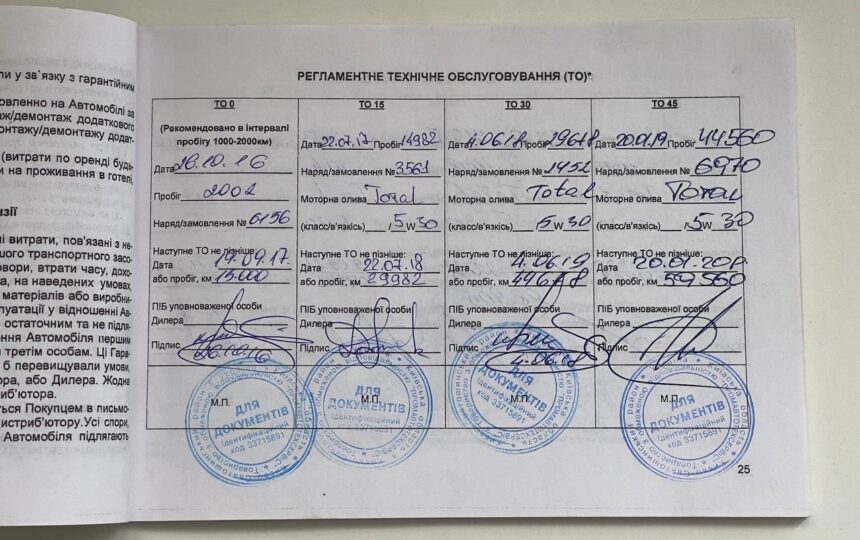 ли у зв`язку з гарантійним
овленно на Автомобілі за
аж/демонтаж додаткового
монтажу/демонтажу додат-
(витрати по оренді будь-
и на проживання в готелі,
нзії
ні витрати, пов'язані з не-
шого транспортного засо-
овори, втрати часу, дохо-
а, на наведених умовах,
матеріалів або виробни-
плуатації у відношенні Ав-
остаточним та не підля-
ння Автомобіля першим
третім особам. Ці Гара-
б перевищували умови,
ора, або Дилера. Жодна
риб'ютора.
ться Покупцем в письмо-
истриб'ютору.Усі спори,
Автомобіля підлягають
РЕГЛАМЕНТНЕ ТЕХНІЧНЕ ОБСЛУГОВУВАННЯ (ТО)*
ТО 0
(Рекомендовано в інтервалі
пробігу 1000-2000км)
Дата 26.10.16
Пробіг 2002
Наряд/замовлення № 6156
Наступне ТО не пізніше:
Дата 19.04.17.
або пробіг, км 15.000
ПІБ уповноваженої особи
Дилера
Підпис
26.10.16
М.П.
ТО 15
Дата 22.07.17 Пробіг 14982
Наряд/замовлення № 3561
Моторна олива Total
(класс/в'язкість) /5 W 30
Наступне ТО не пізніше:
Дата 22.07.18
або пробіг, км 29982
ПІБ уповноваженої особи
Дилера
Підпис
М.П.
ТО 30
Дата 4.06.18 Пробіг 29678
Наряд/замовлення № 1452
Моторна олива Total
(класс/в'язкість) /5 W 30
Наступне ТО не пізніше:
Дата 4.06.19
або пробіг, км 44678
ПІБ уповноваженої особи
Дилера
Підпис
4.06.18
М.П.
ТО 45
Дата 20.01.19 Пробіг 44560
Наряд/замовлення № 6970
Моторна олива Total
(класс/в'язкість) /5 W 30
Наступне ТО не пізніше:
Дата 20.01.20
або пробіг, км 59560
ПІБ уповноваженої особи
Дилера
Підпис
М.П.
ДЛЯ
ДОКУМЕНТІВ
Ідентифікаційний
код 33715891
ДЛЯ
ДОКУМЕНТІВ
Ідентифікаційний
код 33715891
ДЛЯ
ДОКУМЕНТІВ
Ідентифікаційний
код 33715891
ДЛЯ
ДОКУМЕНТІВ
Ідентифікаційний
код 33715891
25